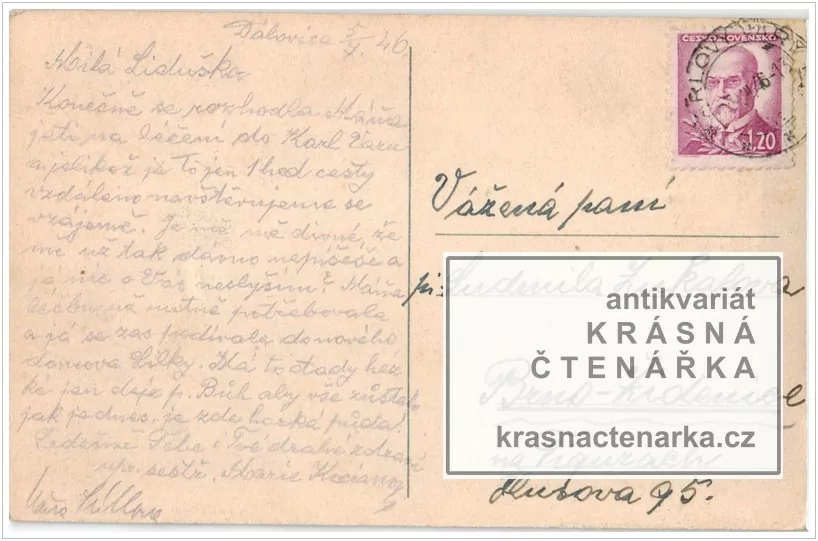 Dálovice 5/X. 46.
Milá Liduško
Konečně se rozhodla Máňa
jeti na léčení do Karl Varů
a jelikož já to jen 1 hod cesty
vzdáleno navštěvujeme se
vzájemě. Je mě divné, že
mě už tak dávno nepíšeš a
já nic o Vás neslyším! Máňa
léčbu nutně potřebovala
a já se zas podívala do nového
domova Lilky. Má to tady hez
ké jen dejž p. Bůh aby vše zůstalo
jak je dnes, je zde horká půda!
Tebe i Tvé drahé zdraví
upř. sestř. Marie
ČESKOSLOVENSKO
1.20
KARLOVY VARY
Vážená paní
Ludmila
Brno-Židenice
na
Husova 95.
antikvariát
KRÁSNÁ
ČTENÁŘKA
krasnactenarka.cz